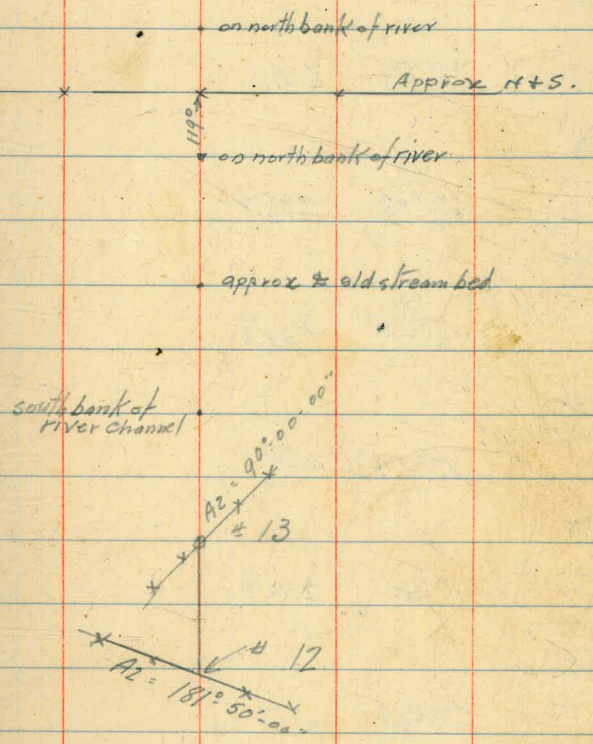 on north bank of river
Approx N + S.
119°
on north bank of river
approx ℄ old stream bed
south bank of
river channel
AZ = 90°-00'-00"
# 13
# 12
AZ = 181° 50'-00"